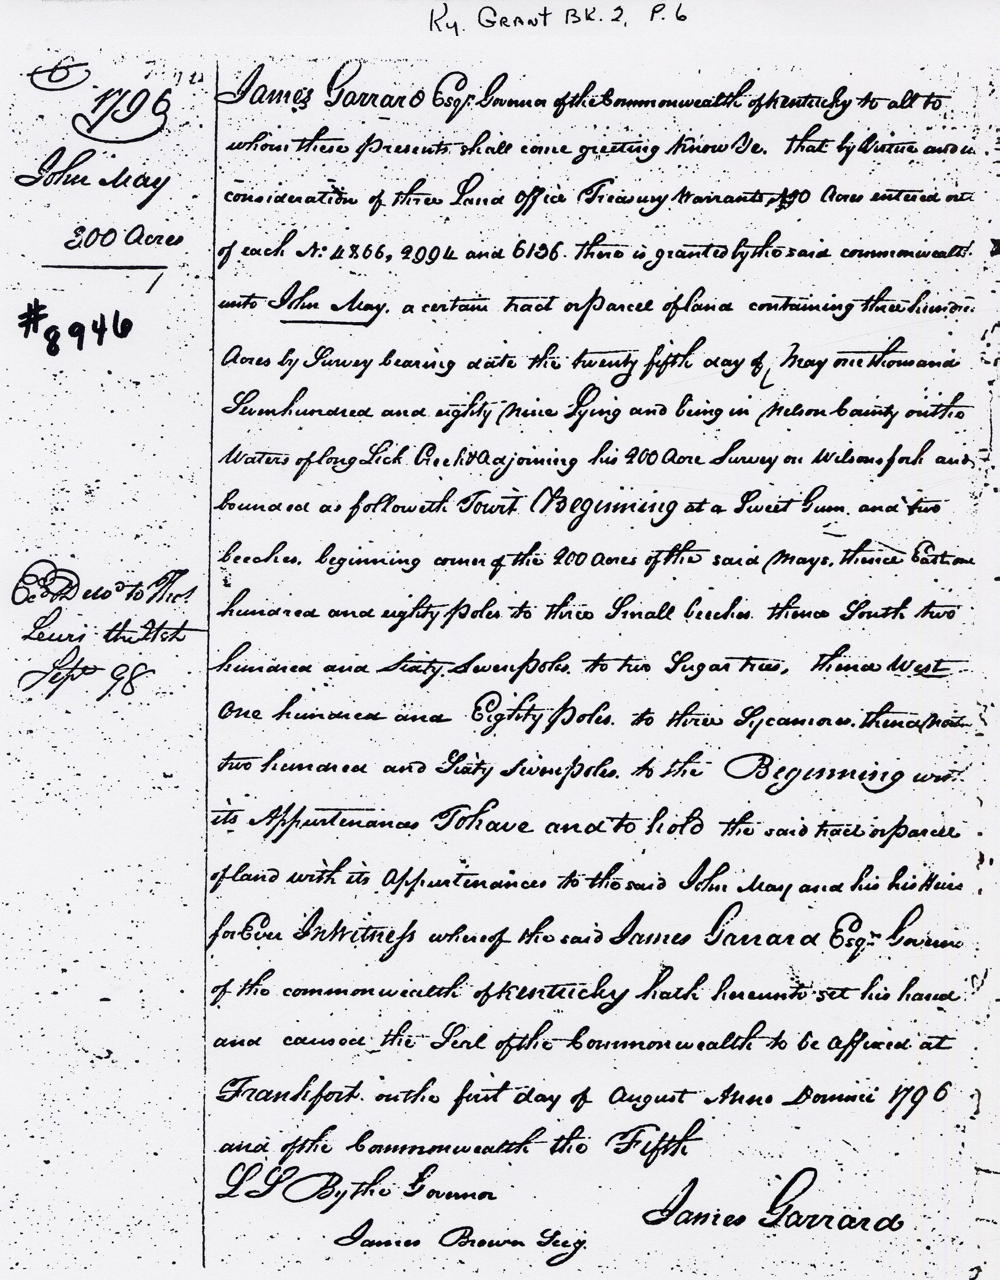 Ky. GRANT BK. 2, P. 6
6
1796
John May
300 Acres
#8946
James Garrard Esqr. Governor of the Commonwealth of Kentucky to all to
whom these presents shall come greeting Know Ye. that by Virtue and in
consideration of three Land Office Treasury Warrants Acres entered out
of each No. 4866, 2994 and 6136. there is granted by the said commonwealth
unto John May. a certain tract or parcel of land containing three hundred
Acres by Survey bearing date the twenty fifth day of May one thousand
Seven hundred and eighty nine Lying and being in Nelson County on the
Waters of long Lick Creek & Adjoining his 200 Acre Survey on Wilsons fork and
bounded as followeth Towit Beginning at a Sweet Gum and two
beeches. beginning corner of the 200 Acres of the said Mays, thence East one
hundred and eighty poles to three Small beeches thence South two
hundred and Sixty Seven poles. to two Sugar trees, thence West
One hundred and Eighty poles. to three Sycamores. thence North
two hundred and Sixty Seven poles. to the Beginning with
its Appurtenances To have and to hold the said tract or parcel
of land with its Appurtenances to the said John May and his his Heirs
for Ever In Witness whereof the said James Garrard Esqr. Governor
of the commonwealth of Kentucky hath hereunto set his hand
and caused the Seal of the Commonwealth to be affixed at
Frankfort on the first day of August Anno Domini 1796
and of the Commonwealth the Fifth
L S By the Governor
James Garrard
James Brown Secy.
Exd. & Deld. to Thos.
Lewis the
Sept. 98